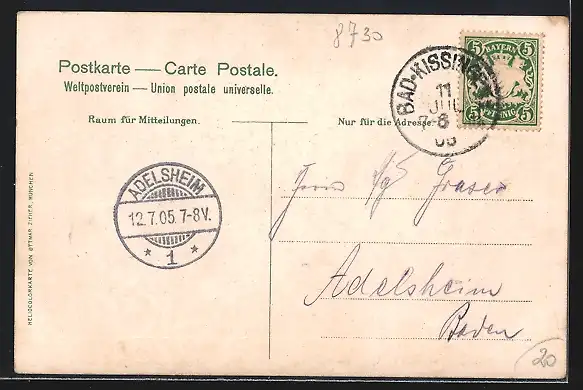 8730
Postkarte — Carte Postale.
Weltpostverein — Union postale universelle.
Raum für Mitteilungen.
Nur für die Adresse.
BAYERN
5 5
PFENNIG
5 5
BAD-KISSINGEN
11
JUL
7-8
05
ADELSHEIM
12.7.05. 7-8V.
* 1 *
Herrn Graser
Adelsheim
Baden
HELIOCOLORKARTE VON OTTMAR ZIEHER, MÜNCHEN
20